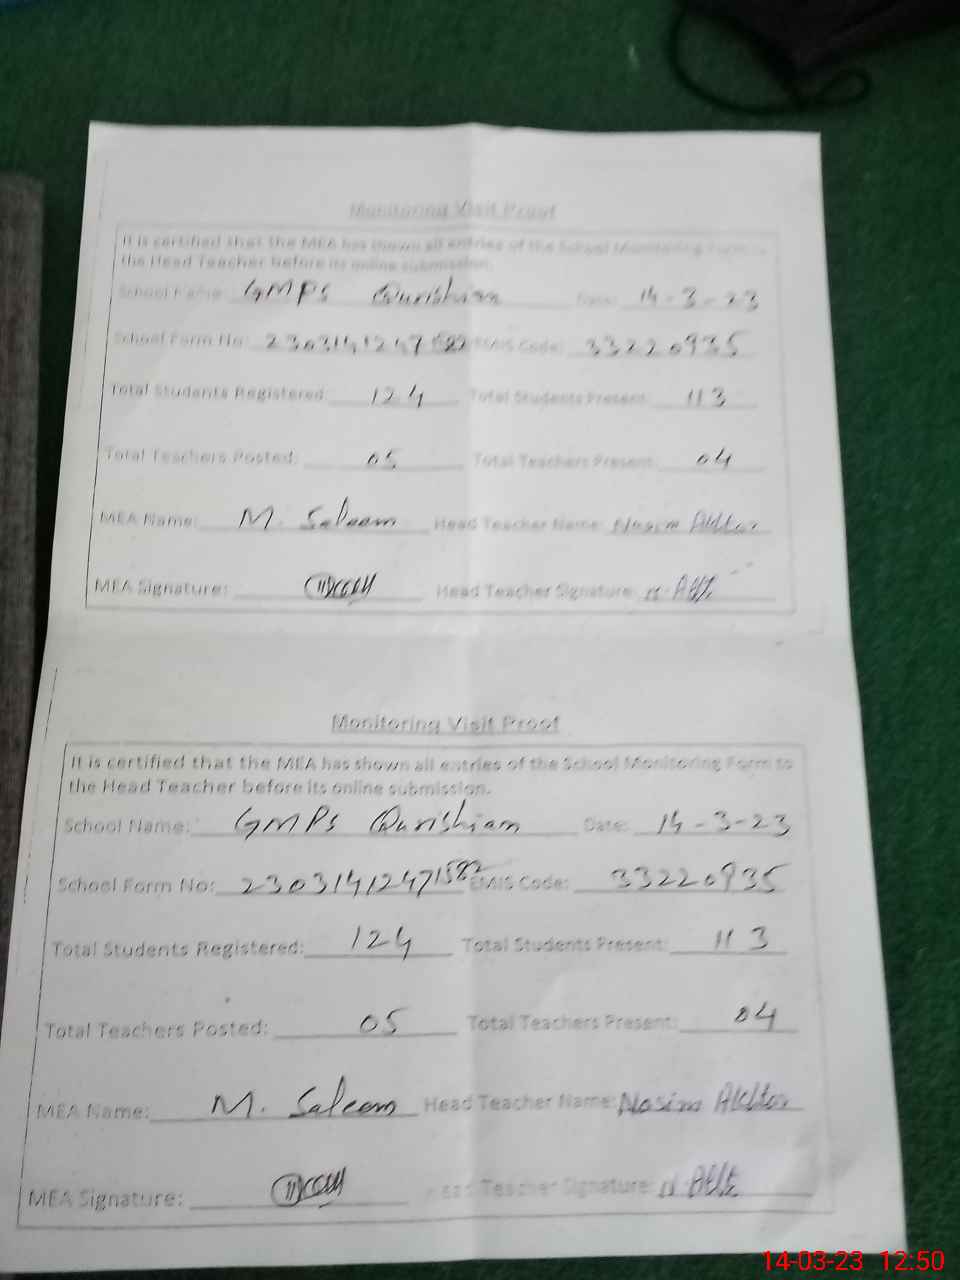 Monitoring Visit Proof
It is certified that the MEA has shown all entries of the School Monitoring Form to
the Head Teacher before its online submission.
School Name: GMPS Qurishian Date: 14-3-23
School Form No: 2303141247582 EMIS Code: 33220935
Total Students Registered: 124 Total Students Present: 113
Total Teachers Posted: 05 Total Teachers Present: 04
MEA Name: M. Saleem Head Teacher Name: Nasim Akhtar
MEA Signature: Head Teacher Signature:
Monitoring Visit Proof
It is certified that the MEA has shown all entries of the School Monitoring Form to
the Head Teacher before its online submission.
School Name: GMPS Qurishian Date: 14-3-23
School Form No: 23031412471582 EMIS Code: 33220935
Total Students Registered: 124 Total Students Present: 113
Total Teachers Posted: 05 Total Teachers Present: 04
MEA Name: M. Saleem Head Teacher Name: Nasim Akhtar
MEA Signature: Head Teacher Signature:
14-03-23 12:50